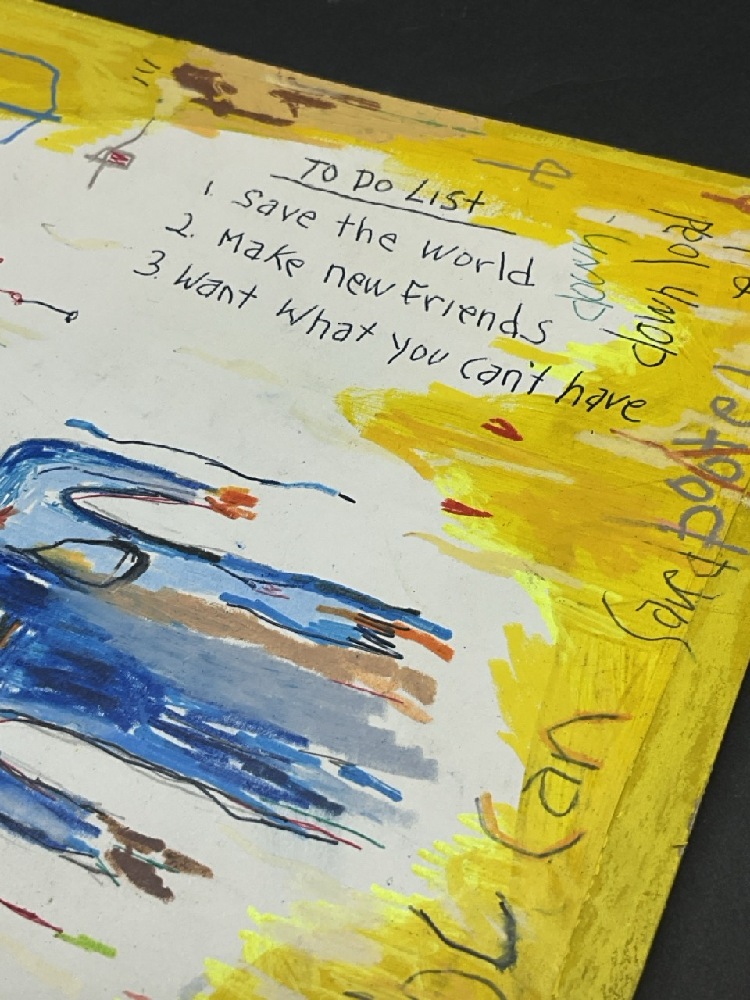 To Do List
1. Save the world
2. Make new Friends
3. Want What you can't have
down
down load
Can